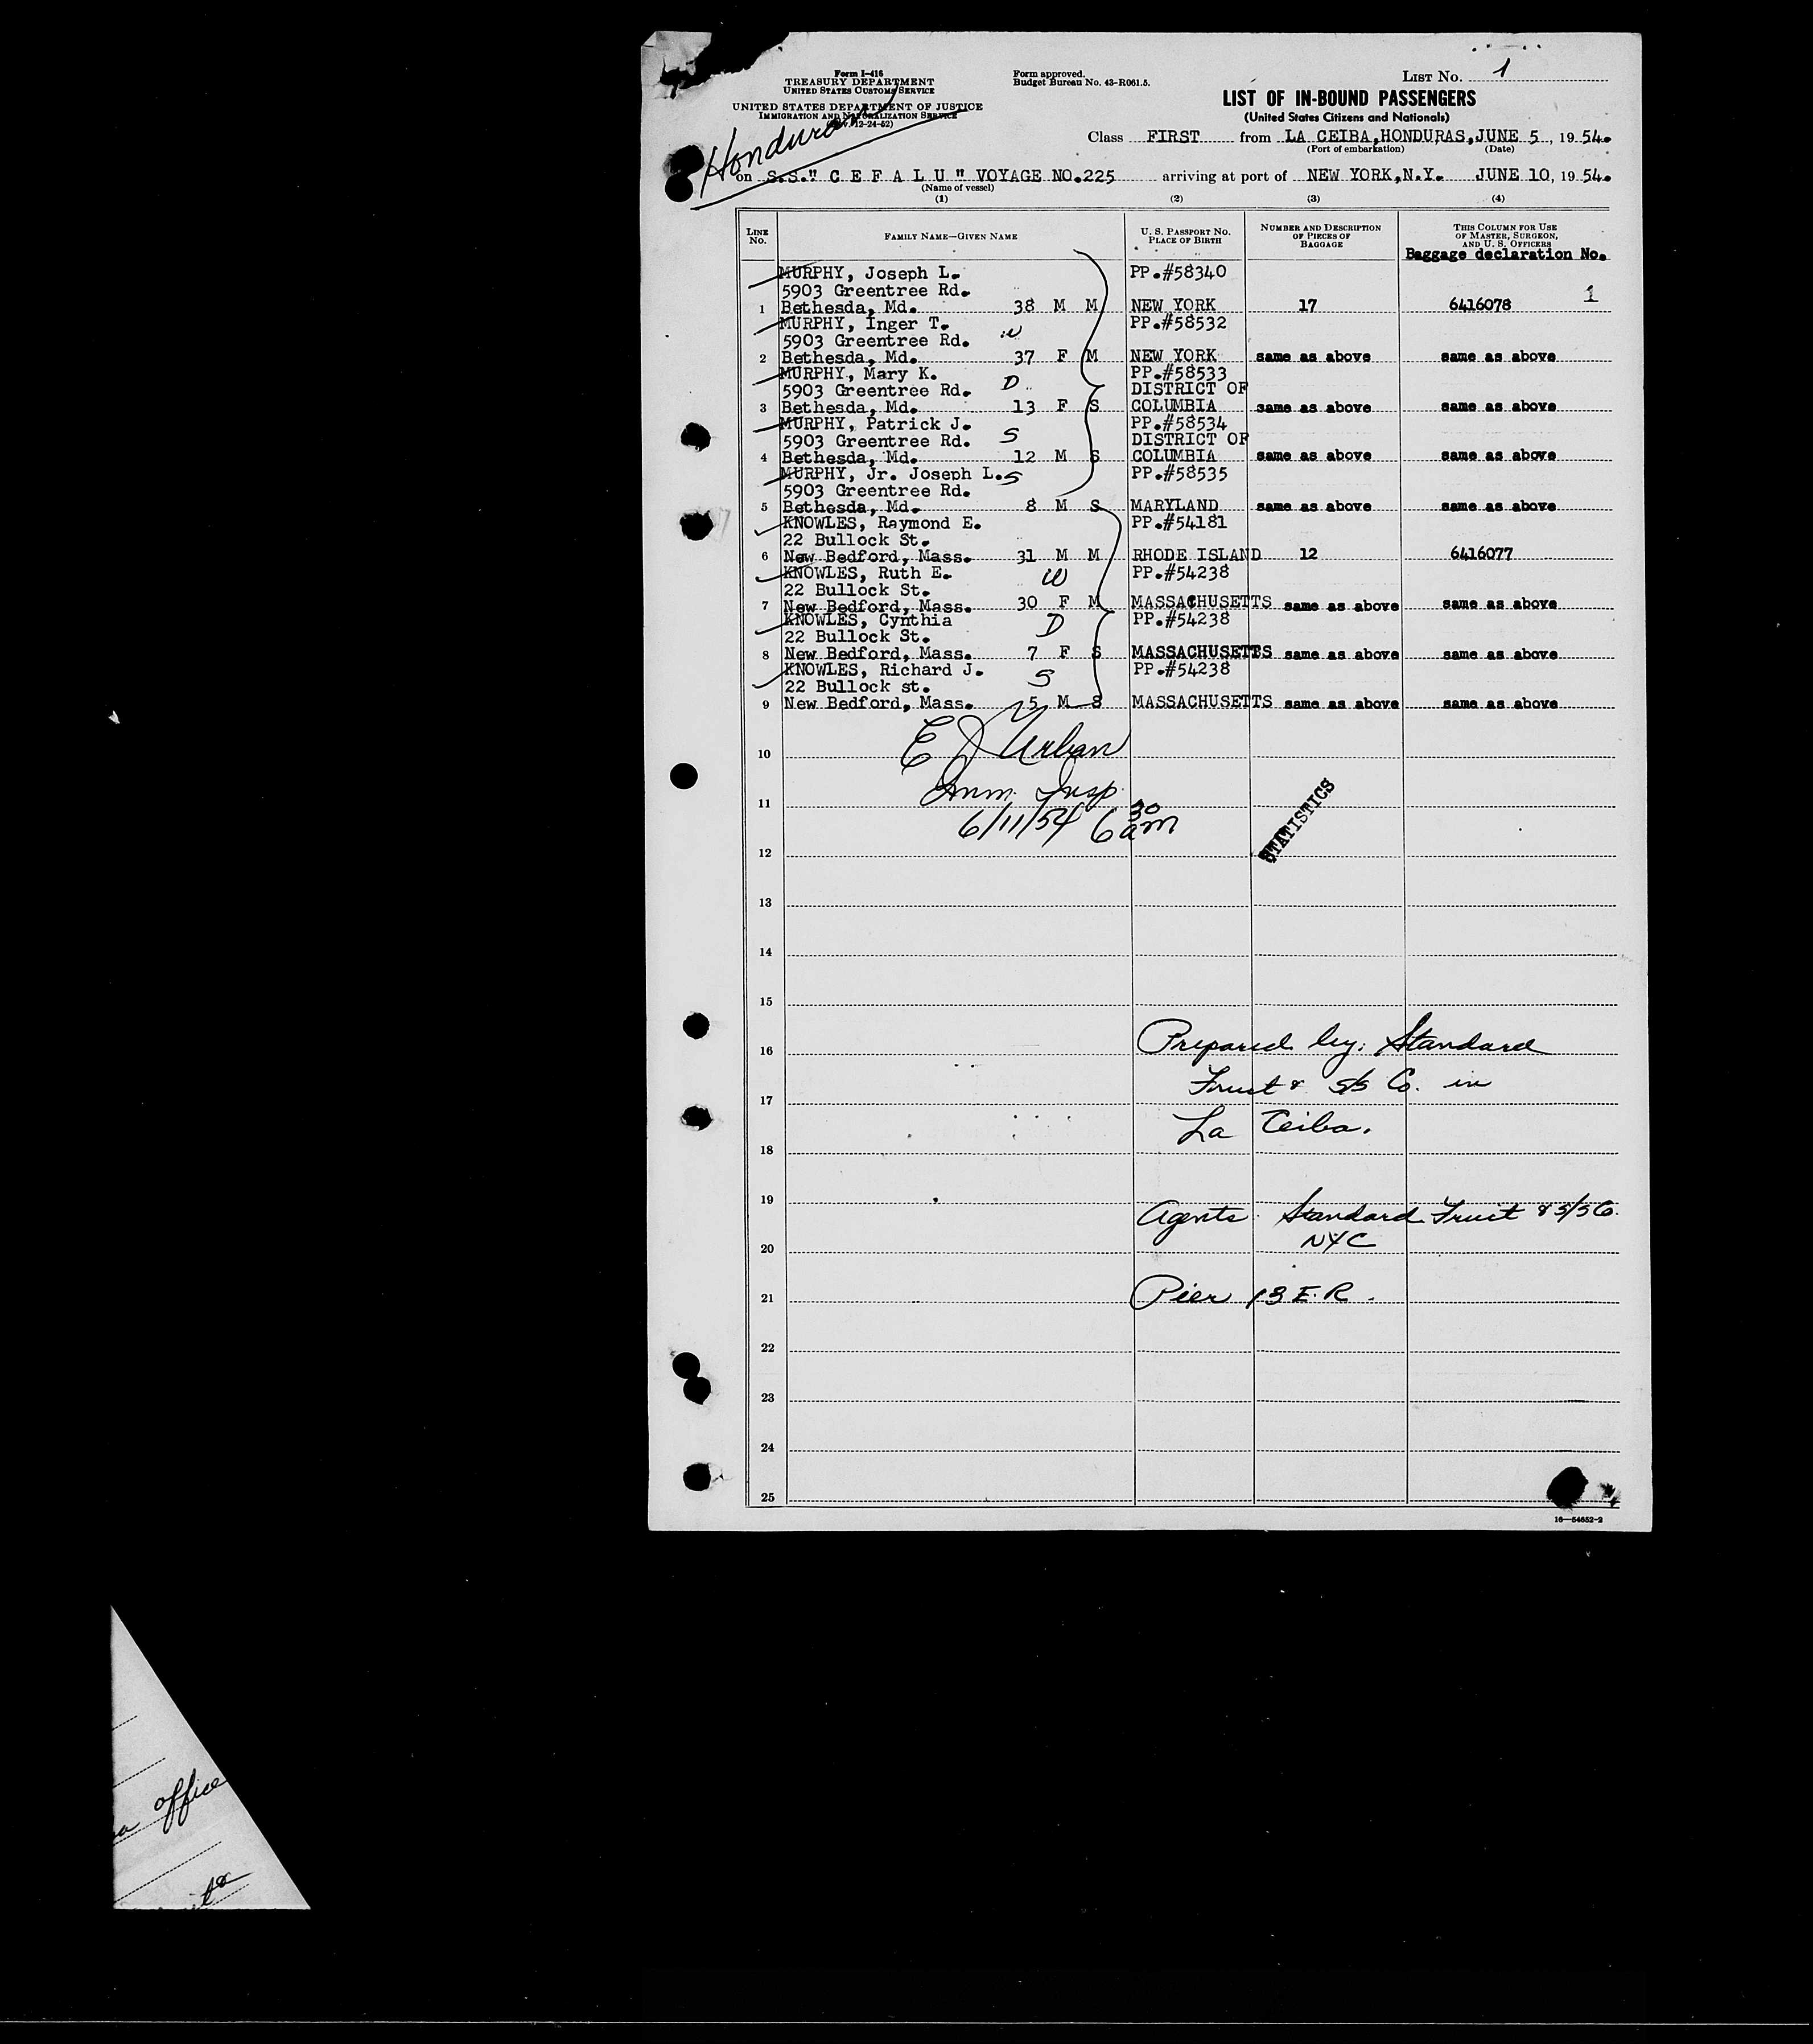 Form I-416
TREASURY DEPARTMENT
UNITED STATES CUSTOMS SERVICE
UNITED STATES DEPARTMENT OF JUSTICE
IMMIGRATION AND NATURALIZATION SERVICE
12-24-52)
Honduran
Form approved.
Budget Bureau No. 43-R061.5.
LIST NO. 1
LIST OF IN-BOUND PASSENGERS
(United States Citizens and Nationals)
Class FIRST from LA CEIBA,HONDURAS,JUNE 5, 1954.
(Port of embarkation) (Date)
on S.S." C E F A L U " VOYAGE NO.225 arriving at port of NEW YORK,N.Y. JUNE 10, 1954.
(Name of vessel)
(1) (2) (3) (4)
LINE NO. FAMILY NAME—GIVEN NAME U. S. PASSPORT NO. PLACE OF BIRTH NUMBER AND DESCRIPTION OF PIECES OF BAGGAGE THIS COLUMN FOR USE OF MASTER, SURGEON, AND U. S. OFFICERS
Baggage declaration No.
MURPHY, Joseph L. PP.#58340
5903 Greentree Rd. 1
1 Bethesda, Md. 38 M M NEW YORK 17 6416078
MURPHY, Inger T. PP.#58532
5903 Greentree Rd. W
2 Bethesda, Md. 37 F M NEW YORK same as above same as above
MURPHY, Mary K. PP.#58533
5903 Greentree Rd. D DISTRICT OF
3 Bethesda, Md. 13 F S COLUMBIA same as above same as above
MURPHY, Patrick J. PP.#58534
5903 Greentree Rd. S DISTRICT OF
4 Bethesda, Md. 12 M S COLUMBIA same as above same as above
MURPHY, Jr. Joseph L. S PP.#58535
5903 Greentree Rd.
5 Bethesda, Md. 8 M S MARYLAND same as above same as above
KNOWLES, Raymond E. PP.#54181
22 Bullock St.
6 New Bedford, Mass. 31 M M RHODE ISLAND 12 6416077
KNOWLES, Ruth E. W PP.#54238
22 Bullock St.
7 New Bedford, Mass. 30 F M MASSACHUSETTS same as above same as above
KNOWLES, Cynthia D PP.#54238
22 Bullock St.
8 New Bedford, Mass. 7 F S MASSACHUSETTS same as above same as above
KNOWLES, Richard J. S PP.#54238
22 Bullock st.
9 New Bedford, Mass. 5 M S MASSACHUSETTS same as above same as above
E J Urban
10
Imm. Insp.
11
6/11/54 6 30 am
STATISTICS
12
13
14
15
Prepared by: Standard
16
Fruit & S/S Co. in
17
La Ceiba.
18
19
Agents: Standard Fruit & S/S Co.
NYC
20
Pier 13 E.R.
21
22
23
24
25
16—54652-2
office